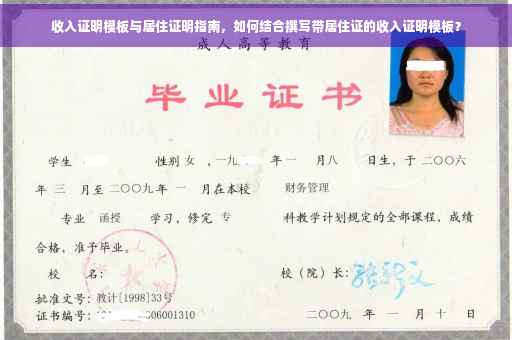 收入证明模板与居住证明指南，如何结合撰写带居住证的收入证明模板？
成人高等教育
毕业证书
学生 性别 女 ，一九 年一 月八 日生，于二〇〇六
年 三 月至二〇〇九年 一 月在本校 财务管理
专业 函授 学习，修完 专 科教学计划规定的全部课程，成绩
合格，准予毕业。
校 名： 校（院）长：
批准文号：教计[1998]33号
证书编号： 06001310 二〇〇九 年 一 月 十 日